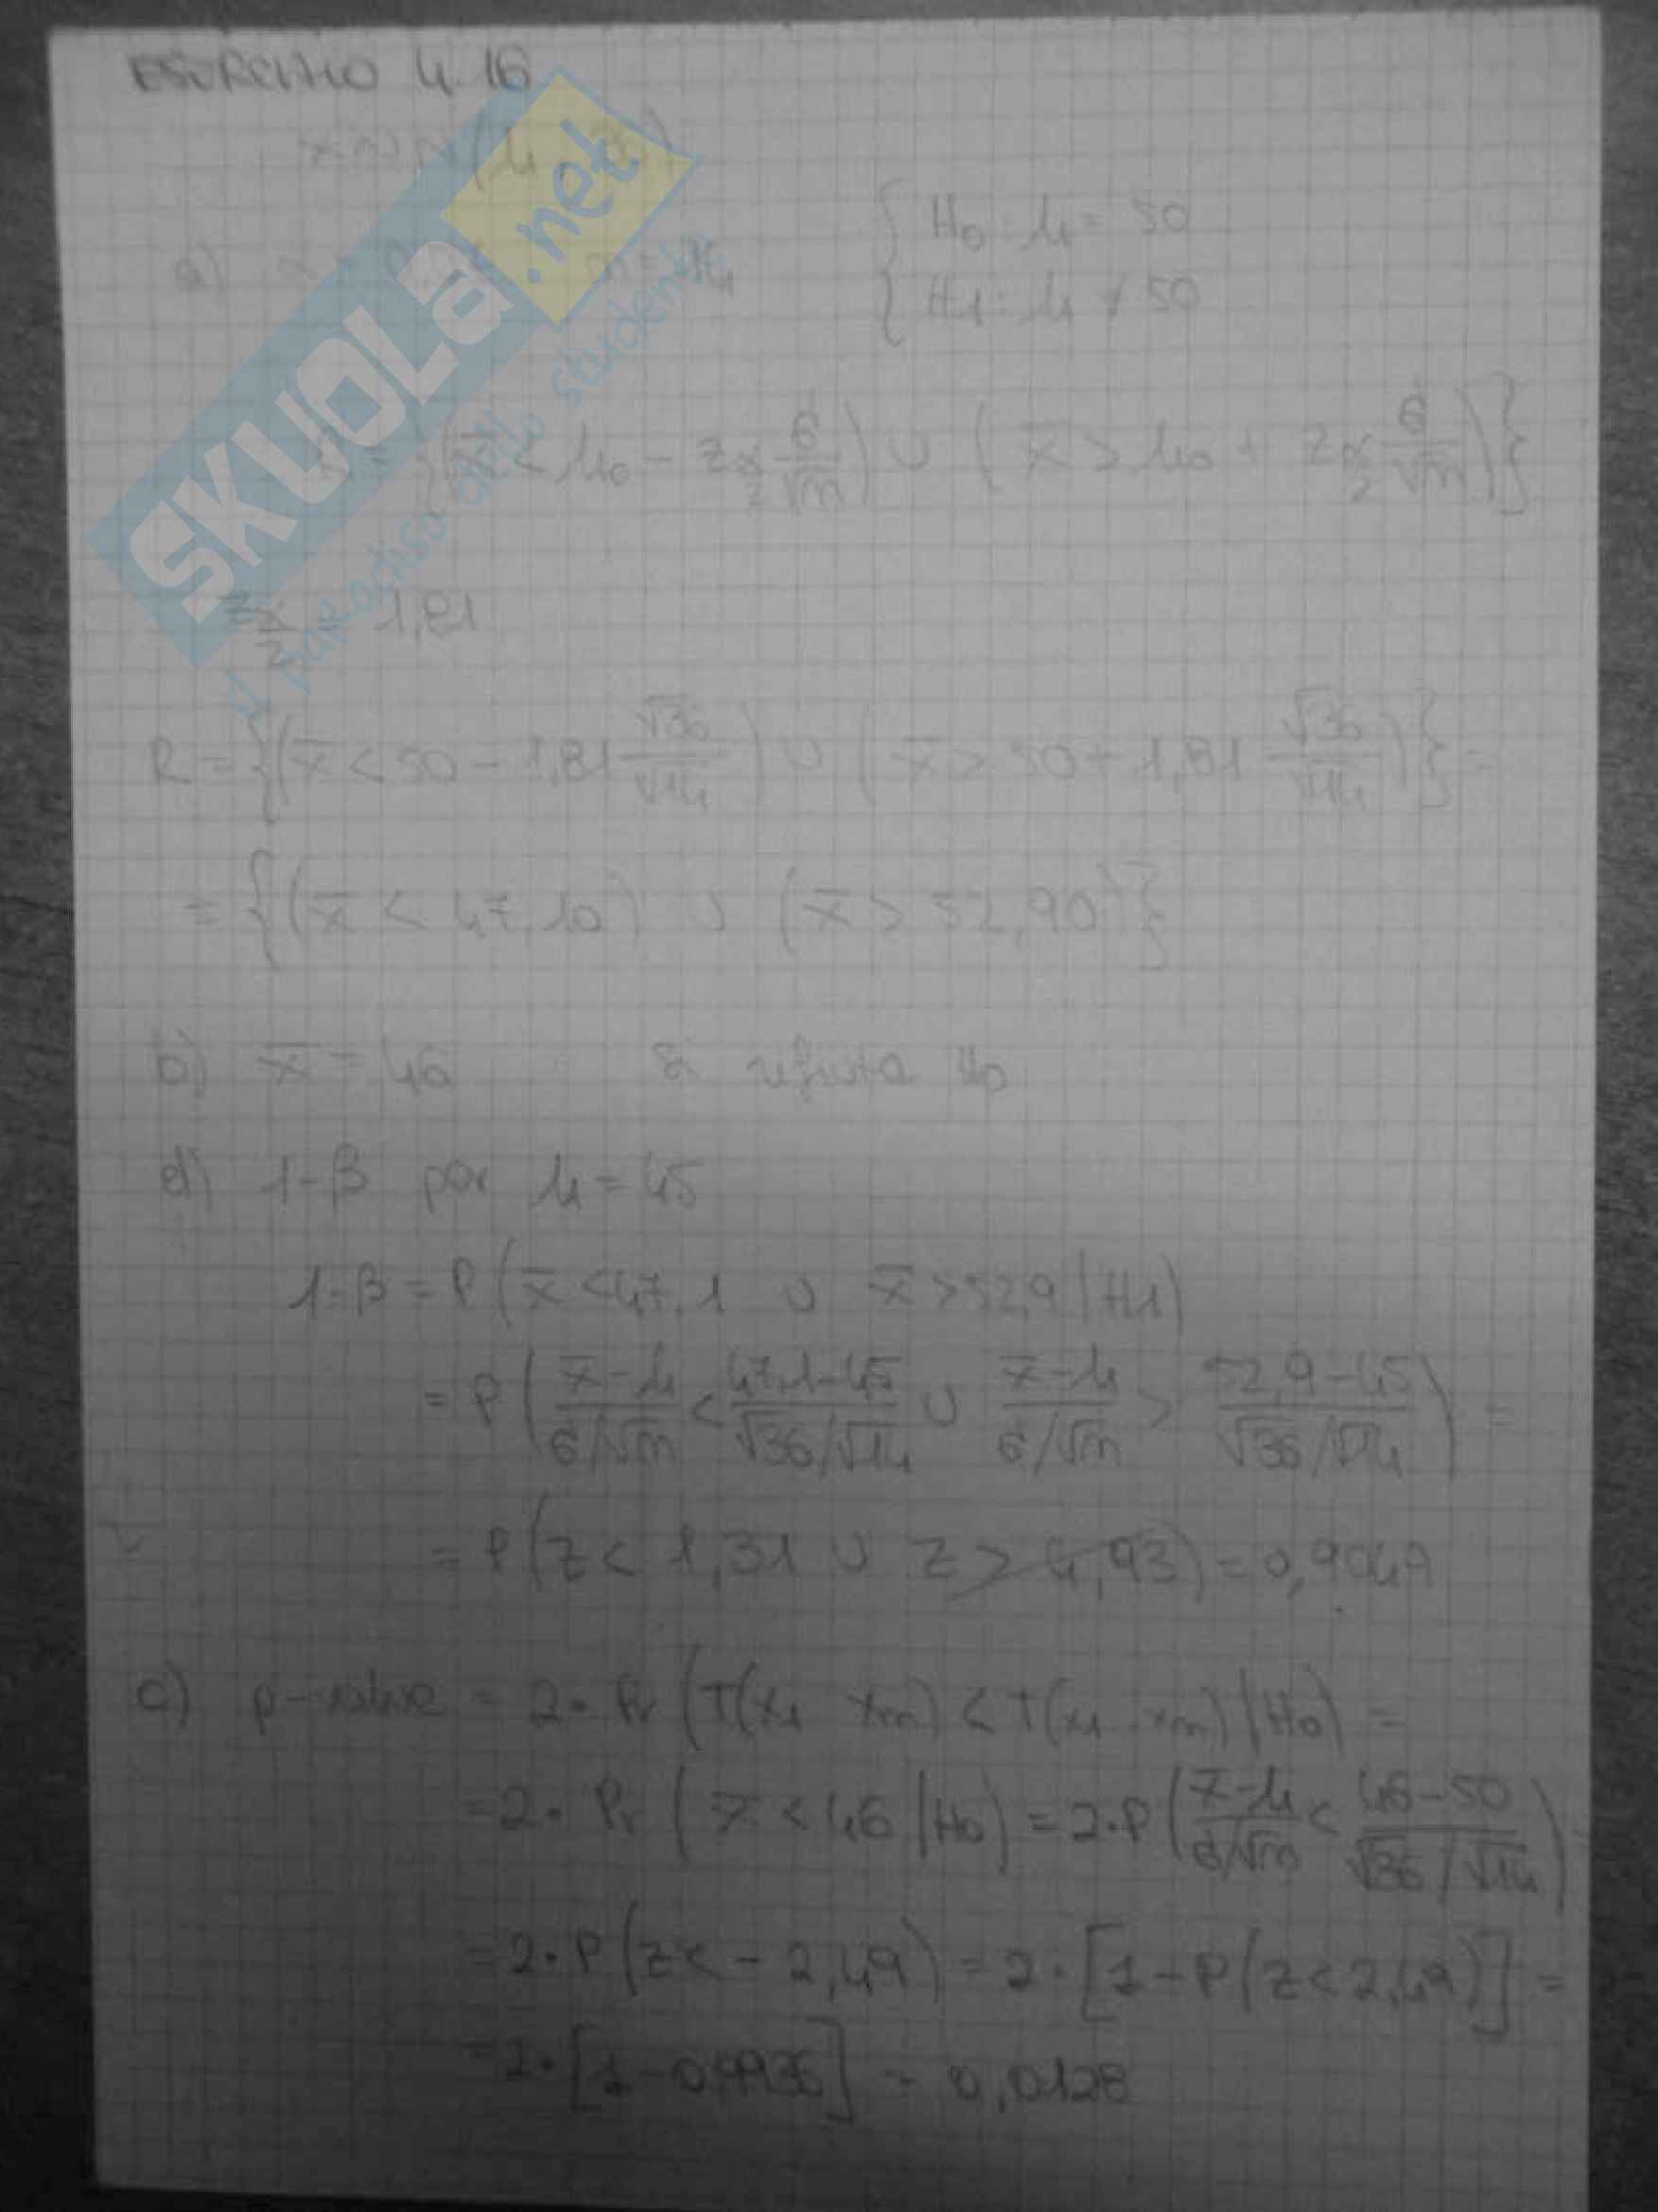 ESERCIZIO 4.16
X ~ N(μ, 36)
a) n = 14 { H0: μ = 50
{ H1: μ ≠ 50
R = {(x̄ < μ0 - z α/2 σ/√n) ∪ (x̄ > μ0 + z α/2 σ/√n)}
z α/2 1,81
R = {(x̄ < 50 - 1,81 √36/√14) ∪ (x̄ > 50 + 1,81 √36/√14)} =
= {(x̄ < 47,10) ∪ (x̄ > 52,90)}
b) x̄ = 46 si rifiuta H0
d) 1-β per μ = 45
1-β = P(x̄ < 47,1 ∪ x̄ > 52,9 | H1)
= P(x̄-μ / σ/√n < 47,1-45 / √36/√14 ∪ x̄-μ / σ/√n > 52,9-45 / √36/√14) =
= P(Z < 1,31 ∪ Z > 4,93) = 0,9049
c) p-value = 2· Pr (T(X1 Xn) < T(x1 .. xn) | H0) =
= 2· Pr (x̄ < 46 | H0) = 2·P(x̄-μ / σ/√n < 46-50 / √36/√14) =
= 2·P(Z < -2,49) = 2·[1-P(Z < 2,49)] =
= 2·[1-0,9936] = 0,0128
SKUOLA.net
il paradiso dello studente